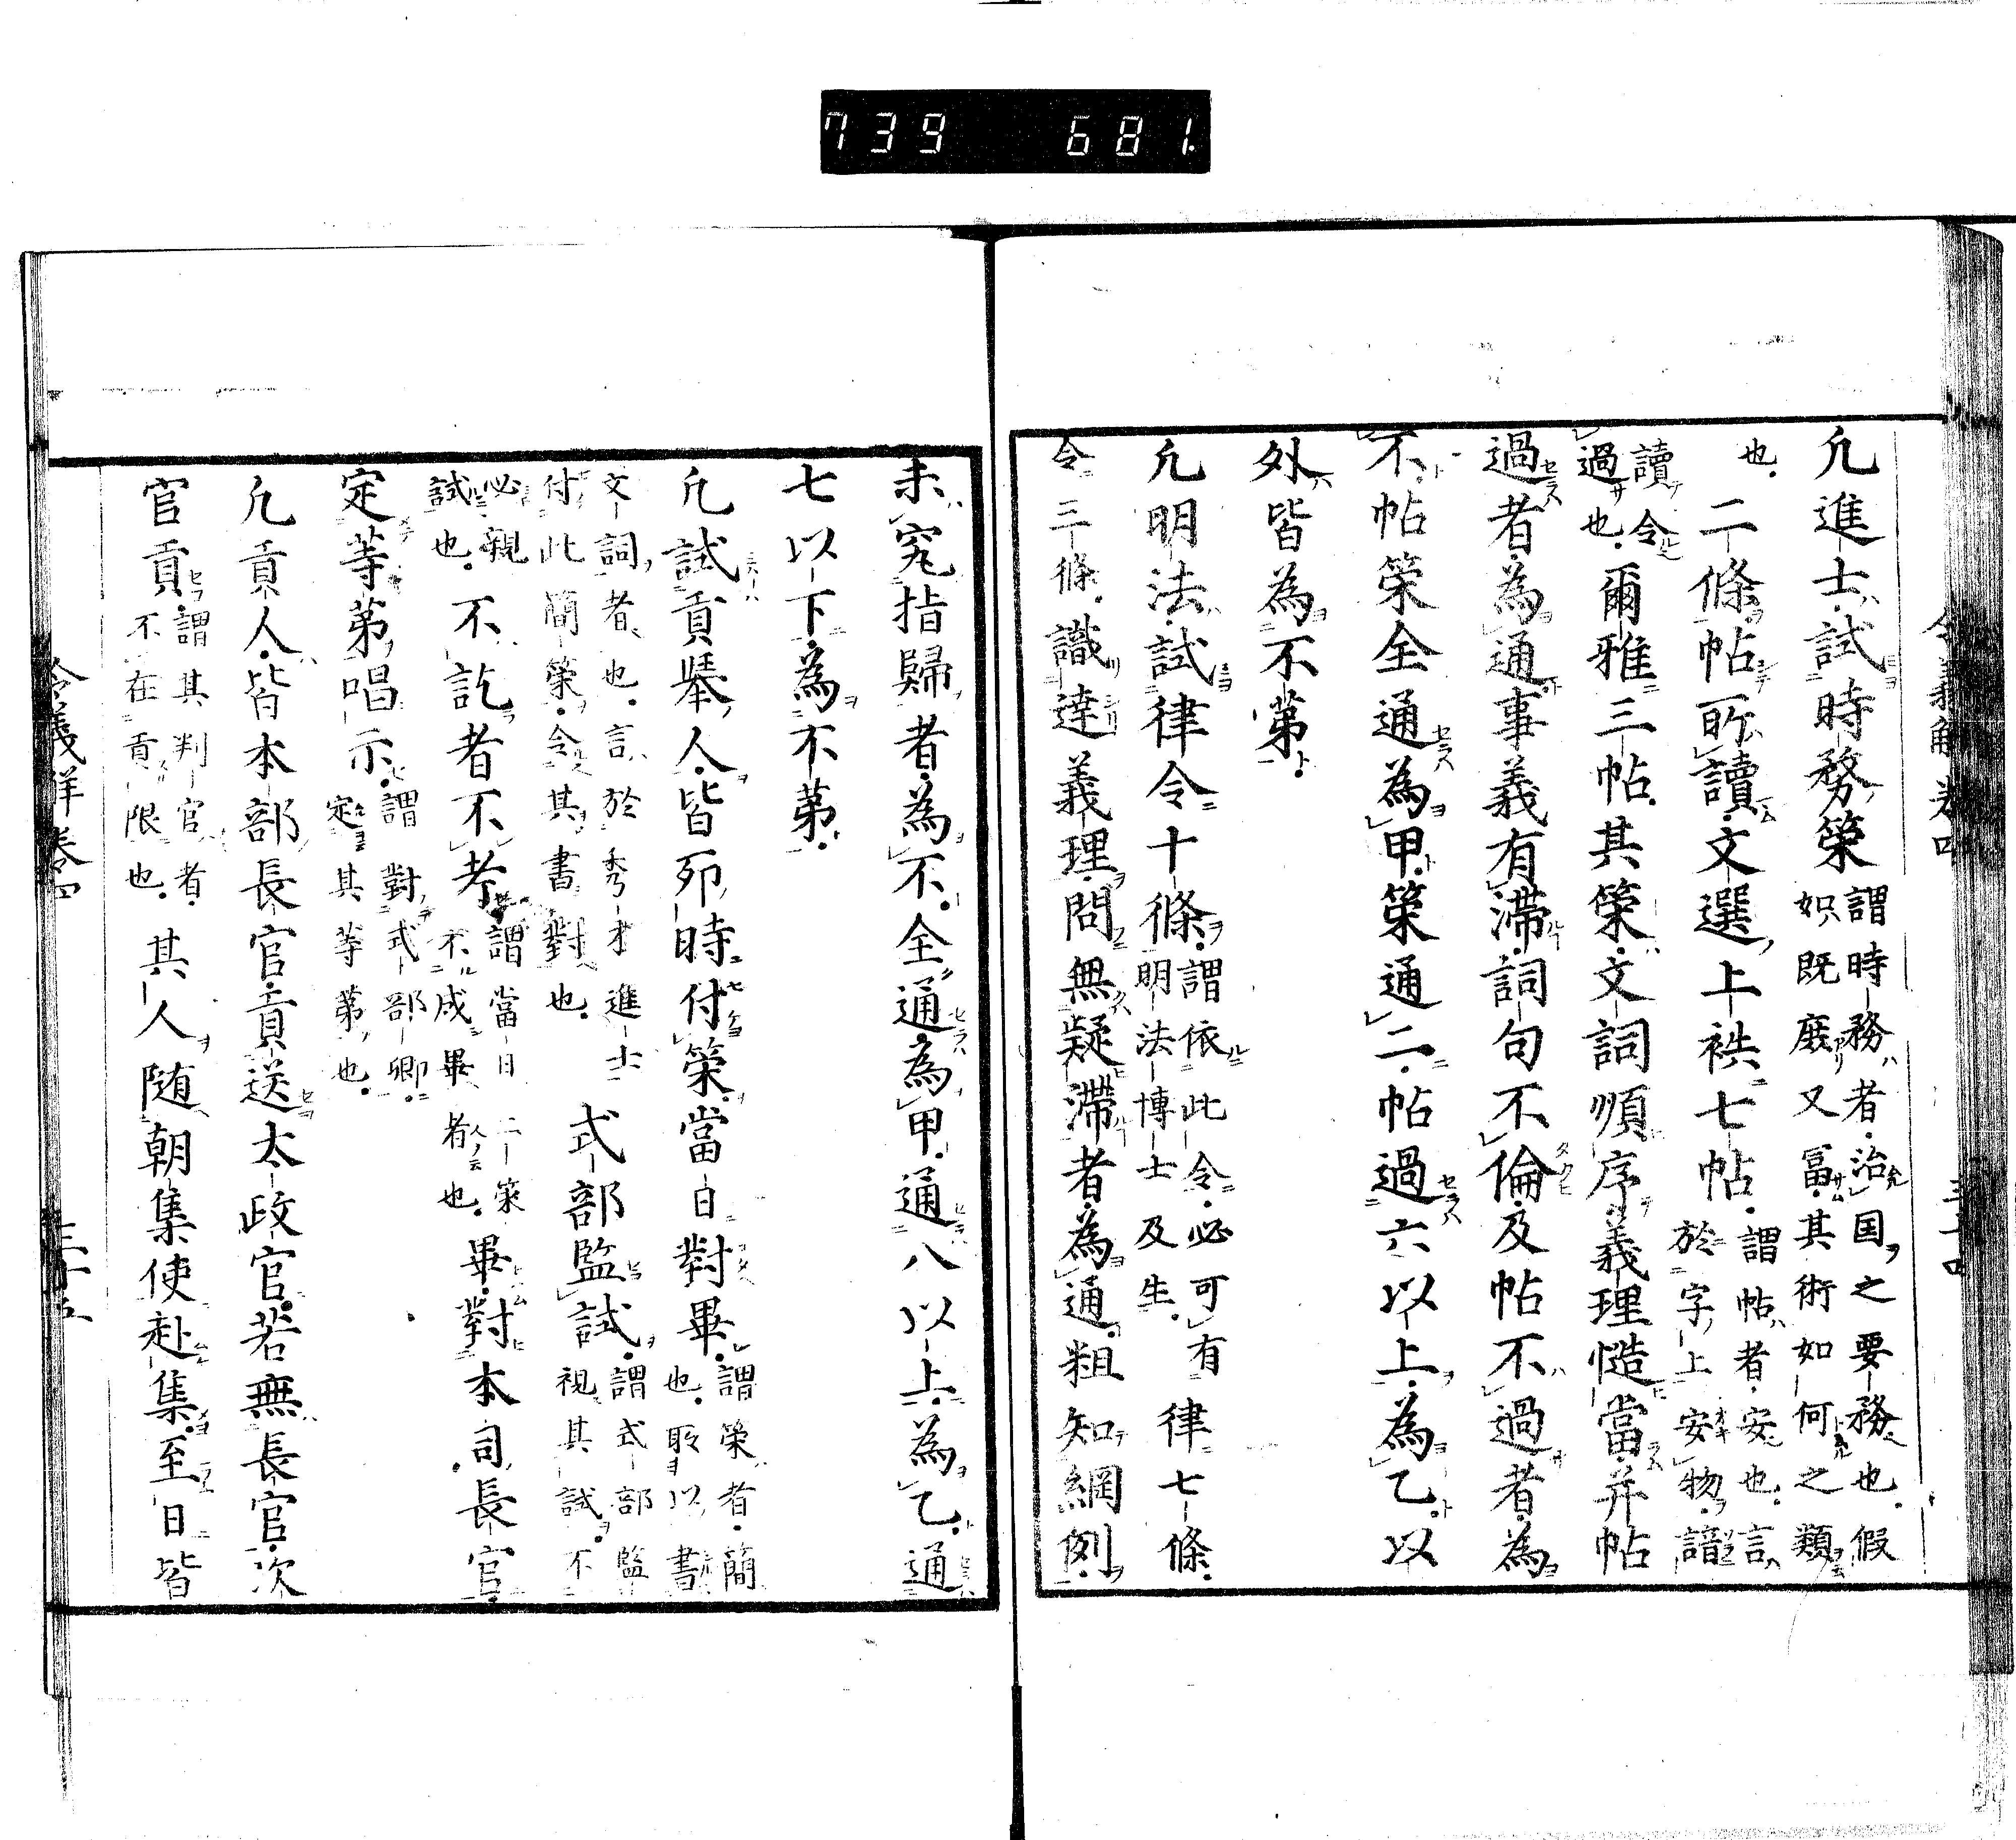 739 681.
凡進士試時務策謂時務者治国之要務也假
如既庶又冨其術如何之類
也二條帖所讀文選上袟七帖謂帖者安也言
於字上安物諳
讀令
過也爾雅三帖其策文詞順序義理慥當并帖
過者為通事義有滞詞句不倫及帖不過者為
不帖策全通為甲策通二帖過六以上為乙以
外皆為不第
凡明法試律令十條謂依此令必可有
明法博士及生律七條
令三條識達義理問無疑滞者為通粗知綱例
未究指歸者為不全通為甲通八以上為乙通
七以下為不第
凡試貢舉人皆卯時付策當日對畢謂策者簡
也取以書
文詞者也言於秀才進士
付此簡策令其書對也式部監試謂式部監
視其試不
必親
試也不訖者不考謂當日二策
不成畢者也畢對本司長官
定等第唱示謂對式部卿
定其等第也
凡貢人皆本部長官貢送太政官若無長官次
官貢謂其判官者
不在貢限也其人随朝集使赴集至日皆
令義解卷四